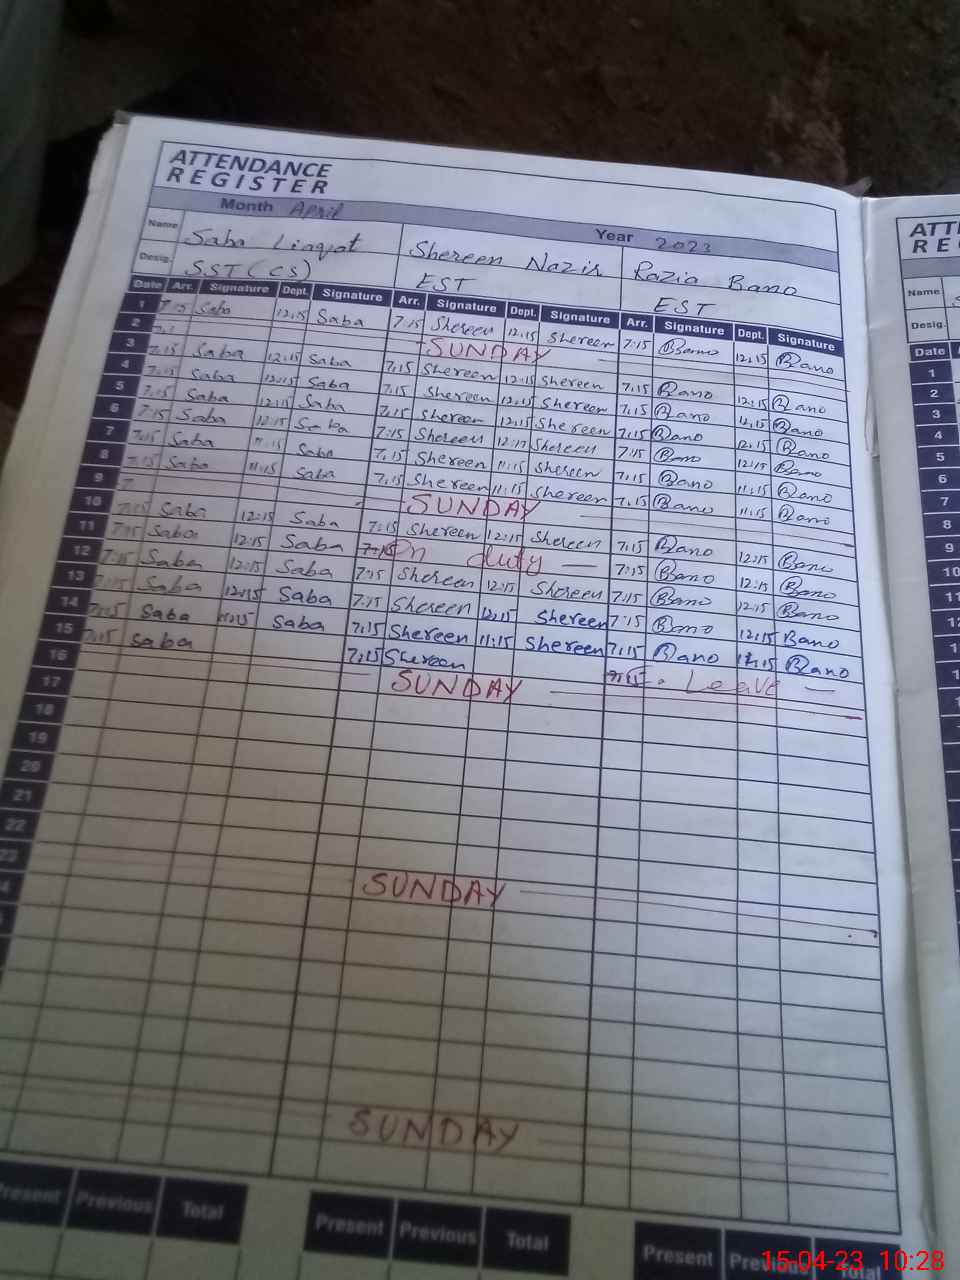 ATTENDANCE
REGISTER
Month April Year 2023
Name Saba Liaqat Shereen Nazir Razia Bano
Desig. SST(CS) EST EST
Date Arr. Signature Dept. Signature Arr. Signature Dept. Signature Arr. Signature Dept. Signature
1 7:15 Saba 12:15 Saba 7:15 Shereen 12:15 Shereen 7:15 Bano 12:15 Bano
2 SUNDAY
3 7:15 Saba 12:15 Saba 7:15 Shereen 12:15 Shereen 7:15 Bano 12:15 Bano
4 7:15 Saba 12:15 Saba 7:15 Shereen 12:15 Shereen 7:15 Bano 12:15 Bano
5 7:15 Saba 12:15 Saba 7:15 Shereen 12:15 Shereen 7:15 Bano 12:15 Bano
6 7:15 Saba 12:15 Saba 7:15 Shereen Shereen 7:15 Bano 12:15 Bano
7 7:15 Saba 11:15 Saba 7:15 Shereen 11:15 Shereen 7:15 Bano 11:15 Bano
8 7:15 Saba 11:15 Saba 7:15 Shereen 11:15 Shereen 7:15 Bano 11:15 Bano
9 SUNDAY
10 7:15 Saba 12:15 Saba 7:15 Shereen 12:15 Shereen 7:15 Bano 12:15 Bano
11 7:15 Saba 12:15 Saba On duty 7:15 Bano 12:15 Bano
12 7:15 Saba 12:15 Saba 7:15 Shereen 12:15 Shereen 7:15 Bano 12:15 Bano
13 7:15 Saba 12:15 Saba 7:15 Shereen 12:15 Shereen 7:15 Bano 12:15 Bano
14 7:15 Saba 11:15 Saba 7:15 Shereen 11:15 Shereen 7:15 Bano Bano
15 7:15 Saba 7:15 Shereen Leave
16 SUNDAY
17
18
19
20
21
22
23 SUNDAY
SUNDAY
Present Previous Total Present Previous Total Present Total
ATT
RE
Name
Desig.
Date
1
2
3
4
5
6
7
8
9
10
11
15-04-23 10:28